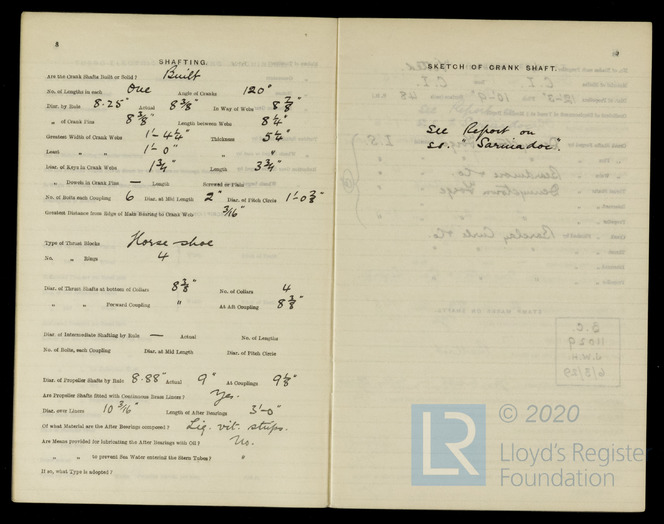 8
SHAFTING.
Are the Crank Shafts Built or Solid? Built
No. of Lengths in each One Angle of Cranks 120°
Diar. by Rule 8.25" Actual 8 3/8" In Way of Webs 8 7/8"
„ of Crank Pins 8 3/8" Length between Webs 8 1/4"
Greatest Width of Crank Webs 1'-4 1/4" Thickness 5 1/4"
Least „ „ 1'-0" „ "
Diar. of Keys in Crank Webs 1 3/4" Length 3 3/4"
„ Dowels in Crank Pins — Length Screwed or Plain
No. of Bolts each Coupling 6 Diar. at Mid Length 2" Diar. of Pitch Circle
Greatest Distance from Edge of Main Bearing to Crank Web 3/16"
Type of Thrust Blocks Horse shoe
No. „ Rings 4
Diar. of Thrust Shafts at bottom of Collars 8 3/8" No. of Collars 4
„ „ Forward Coupling " At Aft Coupling 8 3/8"
Diar. of Intermediate Shafting by Rule — Actual No. of Lengths
No. of Bolts, each Coupling Diar. at Mid Length Diar. of Pitch Circle
Diar. of Propeller Shafts by Rule 8.88" Actual 9" At Couplings 9 1/8"
Are Propeller Shafts fitted with Continuous Brass Liners? Yes.
Diar. over Liners 10 3/16" Length of After Bearings 3'-0"
Of what Material are the After Bearings composed? Lig. vit. strips.
Are Means provided for lubricating the After Bearings with Oil? No.
„ „ to prevent Sea Water entering the Stern Tubes? "
If so, what Type is adopted?
9
SKETCH OF CRANK SHAFT.
See Report on
s.s. "Sarniadoc"
LR
© 2020
Lloyd's Register
Foundation